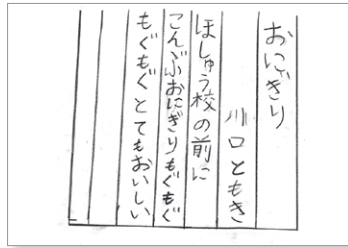 おにぎり
川口ともき
ほしゅう校の前に
こんぶおにぎりもぐもぐ
もぐもぐとてもおいしい